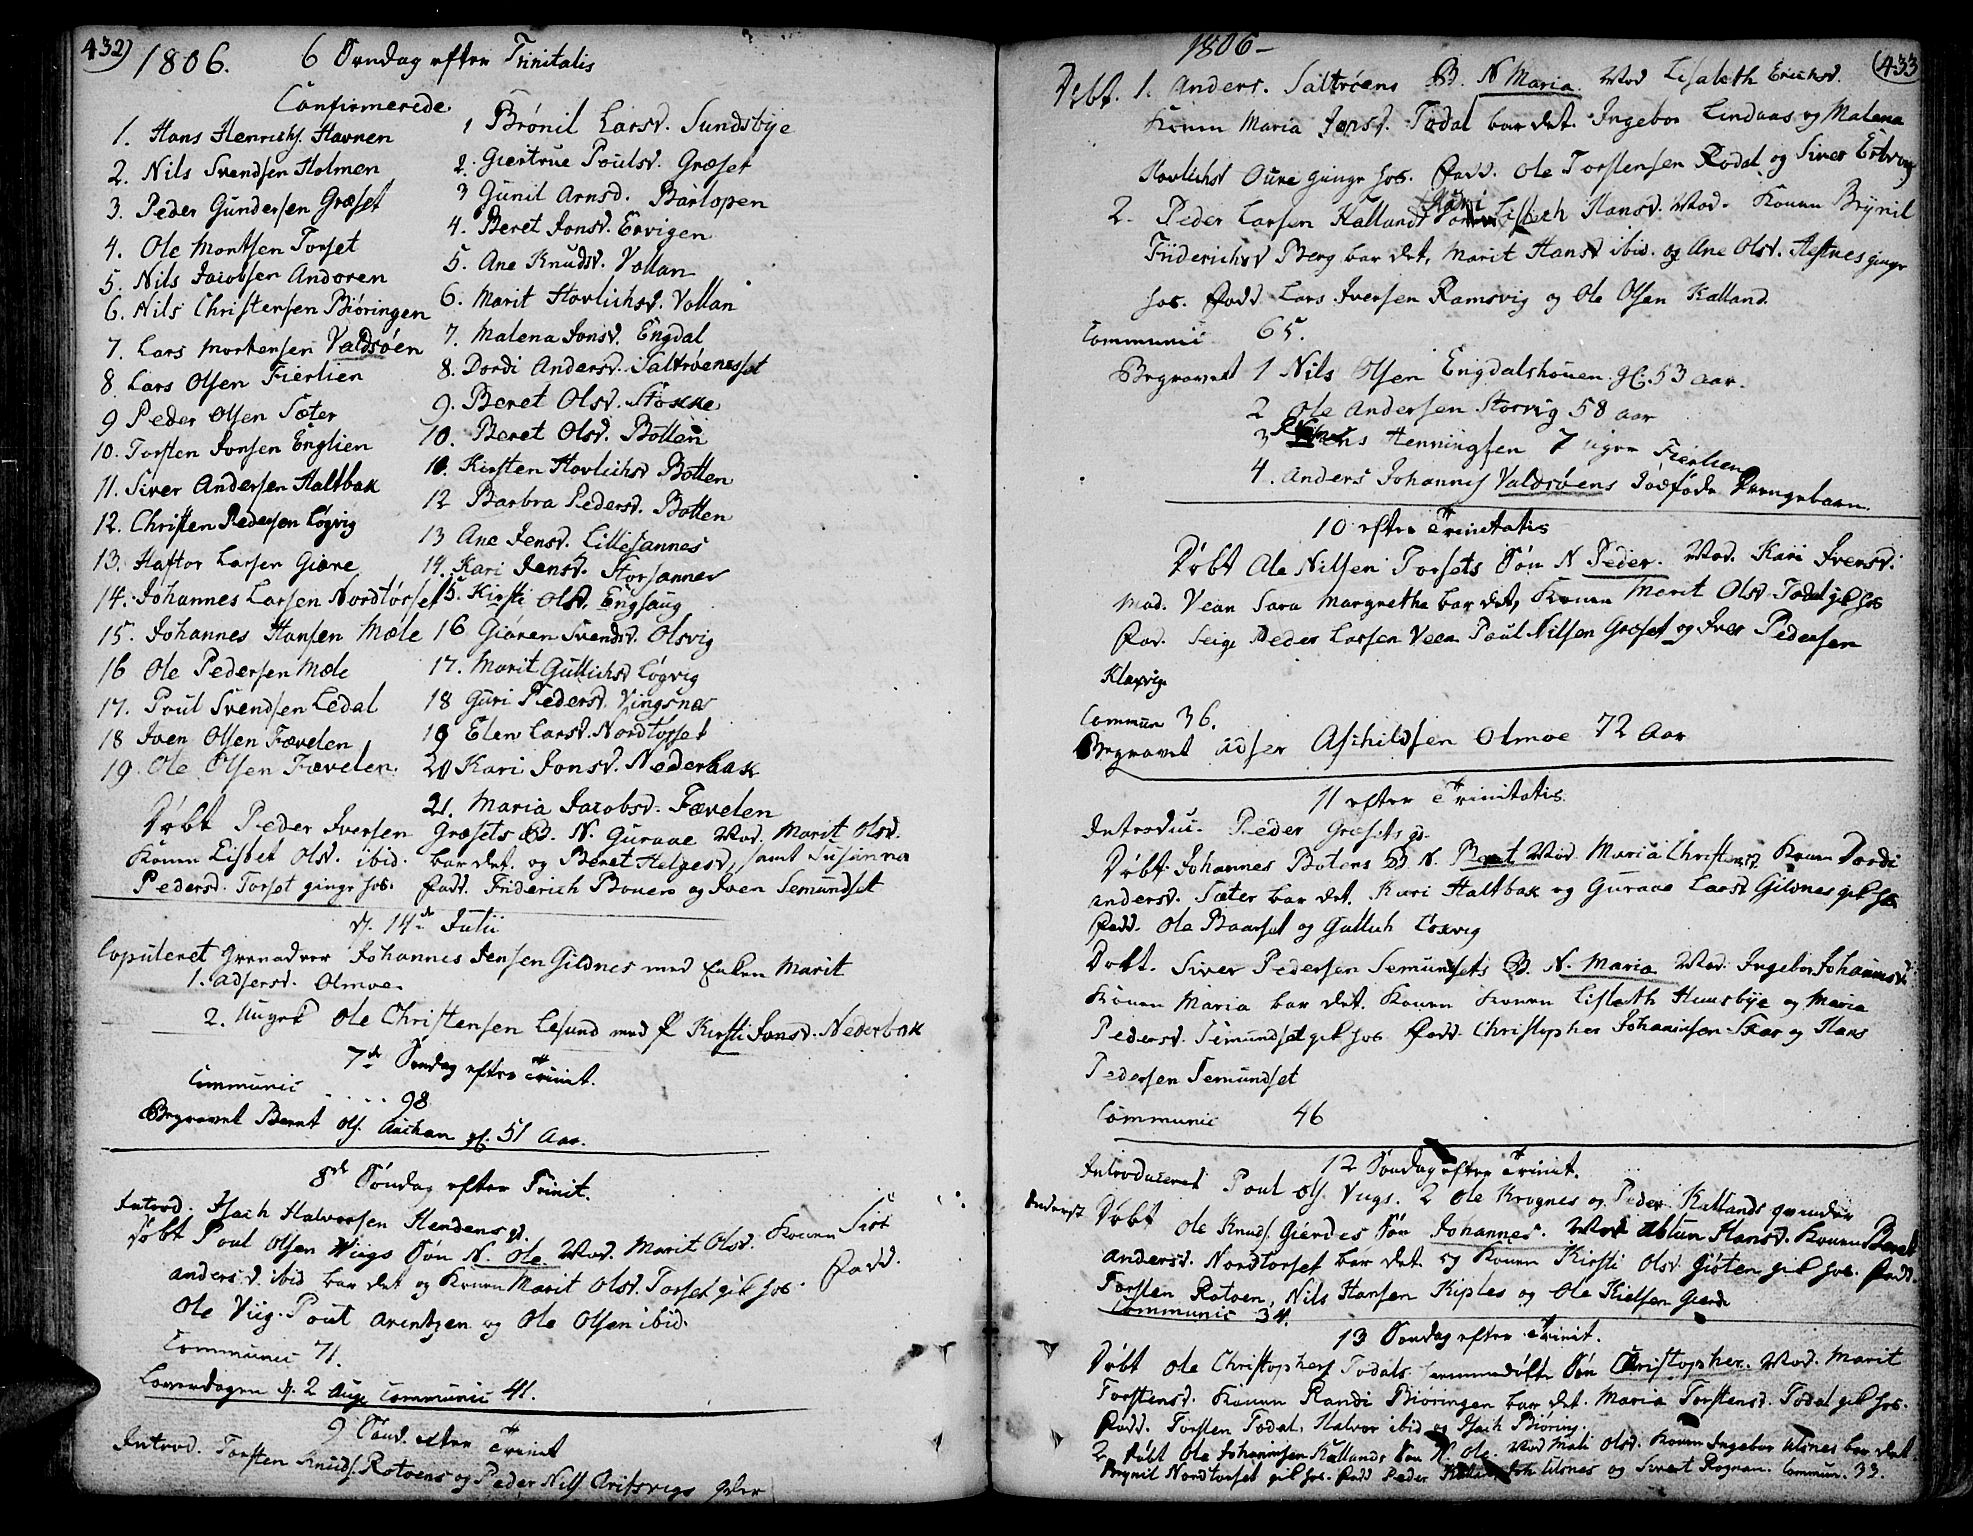 432)
1806. 6 Søndag efter Trinitatis
Confirmerede.
1. Hans Henrichs. Havnen
2. Nils Svendsen Holmen
3. Peder Gundersen Græset
4. Ole Montsen Torset
5. Nils Jacobsen Andoren
6. Nils Christensen Biøringen
7. Lars Mortensen Valdsøen
8. Lars Olsen Fierlien
9 Peder Olsen Sæter
10. Torsten Jonsen Englien
11. Siver Andersen Haltbak
12. Christen Pedersen Løgvig
13. Haftor Larsen Giære
14. Johannes Larsen Nordtorset
15. Johannes Hansen Mæle
16 Ole Pedersen Mæle
17. Poul Svendsen Ledal
18 Iven Olsen Fævelen
19. Ole Olsen Fævelen
1 Brønil Larsd. Sundsbye
2. Giertrue Poulsd. Græset
3 Gunil Arnsd. Bårlopen
4. Beret Jonsd. Ervigen
5. Ane Knudsd. Vollan
6. Marit Hovlichsd. Vollan
7. Malena Jonsd. Engdal
8. Dordi Andersd. Saltrøenesset
9. Beret Olsd. Stokke
10. Beret Olsd. Botten
11. Kirsten Hovlichsd Botten
12 Barbra Pedersd. Botten
13 Ane Jensd. Lillesannes
14. Kari Jensd. Storsannes
15. Kirsti Olsd. Engsaug
16 Giøren Svendsd. Olsvig
17. Marit Gullichsd Løgvig
18 Guri Pedersd. Vingsnæs
19 Elen Larsd. Nordtorset
20 Kari Jonsd. Nederbak
21. Maria Jacobsd. Fævelen
Døbt Peder Iversen Græsets B. N. Guraae Mod. Marit Olsd.
Konen Lisbet Olsd. ibid. bar det. og Beret Helgesd, samt Susanna
Pedersd. Torset ginge hos. Fadd. Friderich Boven og Iven Semundset
d. 14de Julii
Copuleret Grenadeer Johannes Jensen Gildnes med Enken Marit
1. Adsersd. Olmoe.
2. Ungk. Ole Christensen Lesund med P. Kirsti Jonsd. Nederbak
7de Søndag efter Trinit.
Communic ..... 98
Begravet Bernt Ols. Aachan gl. 51 Aar.
8de Søndag efter Trinit.
Introd. Isach Halvorsen Hendens g.
Døbt Poul Olsen Viigs Søn N. Ole Mod. Marit Olsd. Konen Siri
Andersd. ibid bar det og Konen Marit Olsd. Torset gik hos. Fadd.
Ole Viig. Poul Arentzen og Ole Olsen ibid.
Communic 71.
Løverdagen d. 2 Aug. Communic 41.
9 Sønd. efter Trinit
Introd. Torsten Knuds. Rotvens og Peder Nils. Aritsvigs
1806-
(433
Døbt. 1. Anders. Saltrøens B. N Maria. Mod Lisabeth Erichsd.
Konen Maria Jonsd. Todal bar det. Ingebor Lindaas og Malena
Hovlichsd Oure ginge hos. Fadd. Ole Torstensen Rodal og Siver
2. Peder Larsen Kalland Lisbeth Hansd. Mod. Konen Brynil
Friderichsd Berg bar det, Marit Hansd ibid. og Ane Olsd. Hestnes ginge
hos. Fadd. Lars Iversen Ramsvig og Ole Olsen Kalland.
Communic 65.
Begravet 1 Nils Olsen Engdalshouen gl. 53 Aar.
2 Ole Andersen Storvig 58 Aar
3 Henningsen 7 uger Fierlien
4. Anders Johannes Valdsøens dødfødt Drengebarn.
10 efter Trinitatis
Døbt Ole Nilsen Torsets Søn N Peder. Mod. Kari Iversd.
Mad. Vean Sara Margrethe bar det, Konen Marit Olsd Todal gik hos
Fad. Seigr Peder Larsen Veen Poul Nilsen Græset og Iver Pedersen
Klaxvig
Commun 36.
Begravet Adser Aschildsen Olmoe 72 Aar
11 efter Trinitatis
Introduc. Peder Græsets g.
Døbt Johannes Botens B N. Beret Mod Maria Christensd. Konen Dordi
Andersd. Sæter bar det. Kari Haltbak og Guraae Larsd Gildnes gik hos
Fadd. Ole Baarset og Gullich Løxvig
Døbt. Siver Pedersen Semundsets B. N. Maria Mod. Ingebor Johannesd.
Konen Maria bar det. Konen Konen Lisbeth Huusbye og Maria
Pedersd. Semundset gik hos Fadd. Christopher Johannsen Skar og Hans
Pedersen Semundset
Communic 46
12 Søndag efter Trinit.
Introduceret Poul Ols. Vugs. 2 Ole Krognes og Peder Kallands qvinder
Døbt Ole Knuds. Gierdes Søn Johannes. Mod Hansd. Konen Beret
Andersd. Nordtorset bar det og Konen Kirsti Olsd. Giøten gik hos. Fadd.
Torsten Rotven, Nils Hansen Kiples og Ole Kielsen Gierde
Communic 34.
13 Søndag efter Trinit.
Døbt Ole Christophers Todals hiemmedøbte Søn Christopher. Mod. Marit
Torstensd. Konen Randi Biøringen bar det. Maria Torstensd. Todal gik hos.
Fadd. Torsten Todal, Halvor ibid og Isach Biøring.
2. Døbt Ole Johannsen Kallands Søn N. Ole. Mod Mali Olsd. Konen Ingebor Ulsnes bar det
Brynil Nordtorset gik hos. Fadd Peder Ulsnes og Sivert Rognan. Commun. 33.